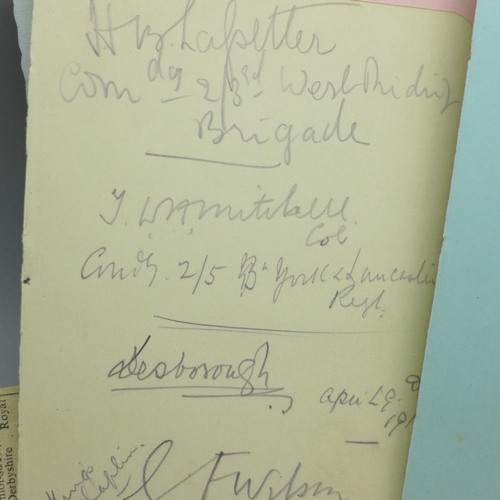 H B. Lassetter
Comdg 2/3rd West Riding
Brigade
T. W H Mitchell
Col
Comdg. 2/5 Bn York & Lancaster
Regt.
Desborough
april 9
191
F Wilson
King's
Chaplin.
Royal
Derbyshire